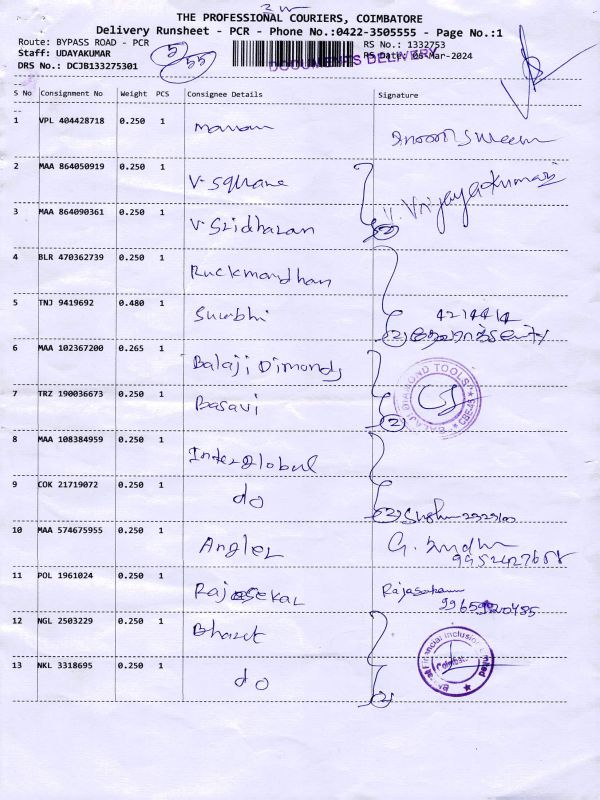 THE PROFESSIONAL COURIERS, COIMBATORE
Delivery Runsheet - PCR - Phone No.:0422-3505555 - Page No.:1
Route: BYPASS ROAD - PCR
RS No.: 1332753
Staff: UDAYAKUMAR
DOCUMENTS DELIVERY
RS Date: 06-Mar-2024
DRS No.: DCJB133275301
5/55
S No Consignment No Weight PCS Consignee Details Signature
1 VPL 404428718 0.250 1
2 MAA 864050919 0.250 1 V. Square
V. Vijayakumari
3 MAA 864090361 0.250 1 V. Sridharan (2)
4 BLR 470362739 0.250 1 Ruckmandhan
5 TNJ 9419692 0.480 1 Surabhi
(2)
6 MAA 102367200 0.265 1 Balaji Dimonds
BALAJI DIAMOND TOOLS
7 TRZ 190036673 0.250 1 Basavi (2)
8 MAA 108384959 0.250 1 Inter global
9 COK 21719072 0.250 1 do (2)
10 MAA 574675955 0.250 1 Angler
11 POL 1961024 0.250 1 Rajasekar
12 NGL 2503229 0.250 1 Bharat
Bharat Financial Inclusion Limited
13 NKL 3318695 0.250 1 do (2)